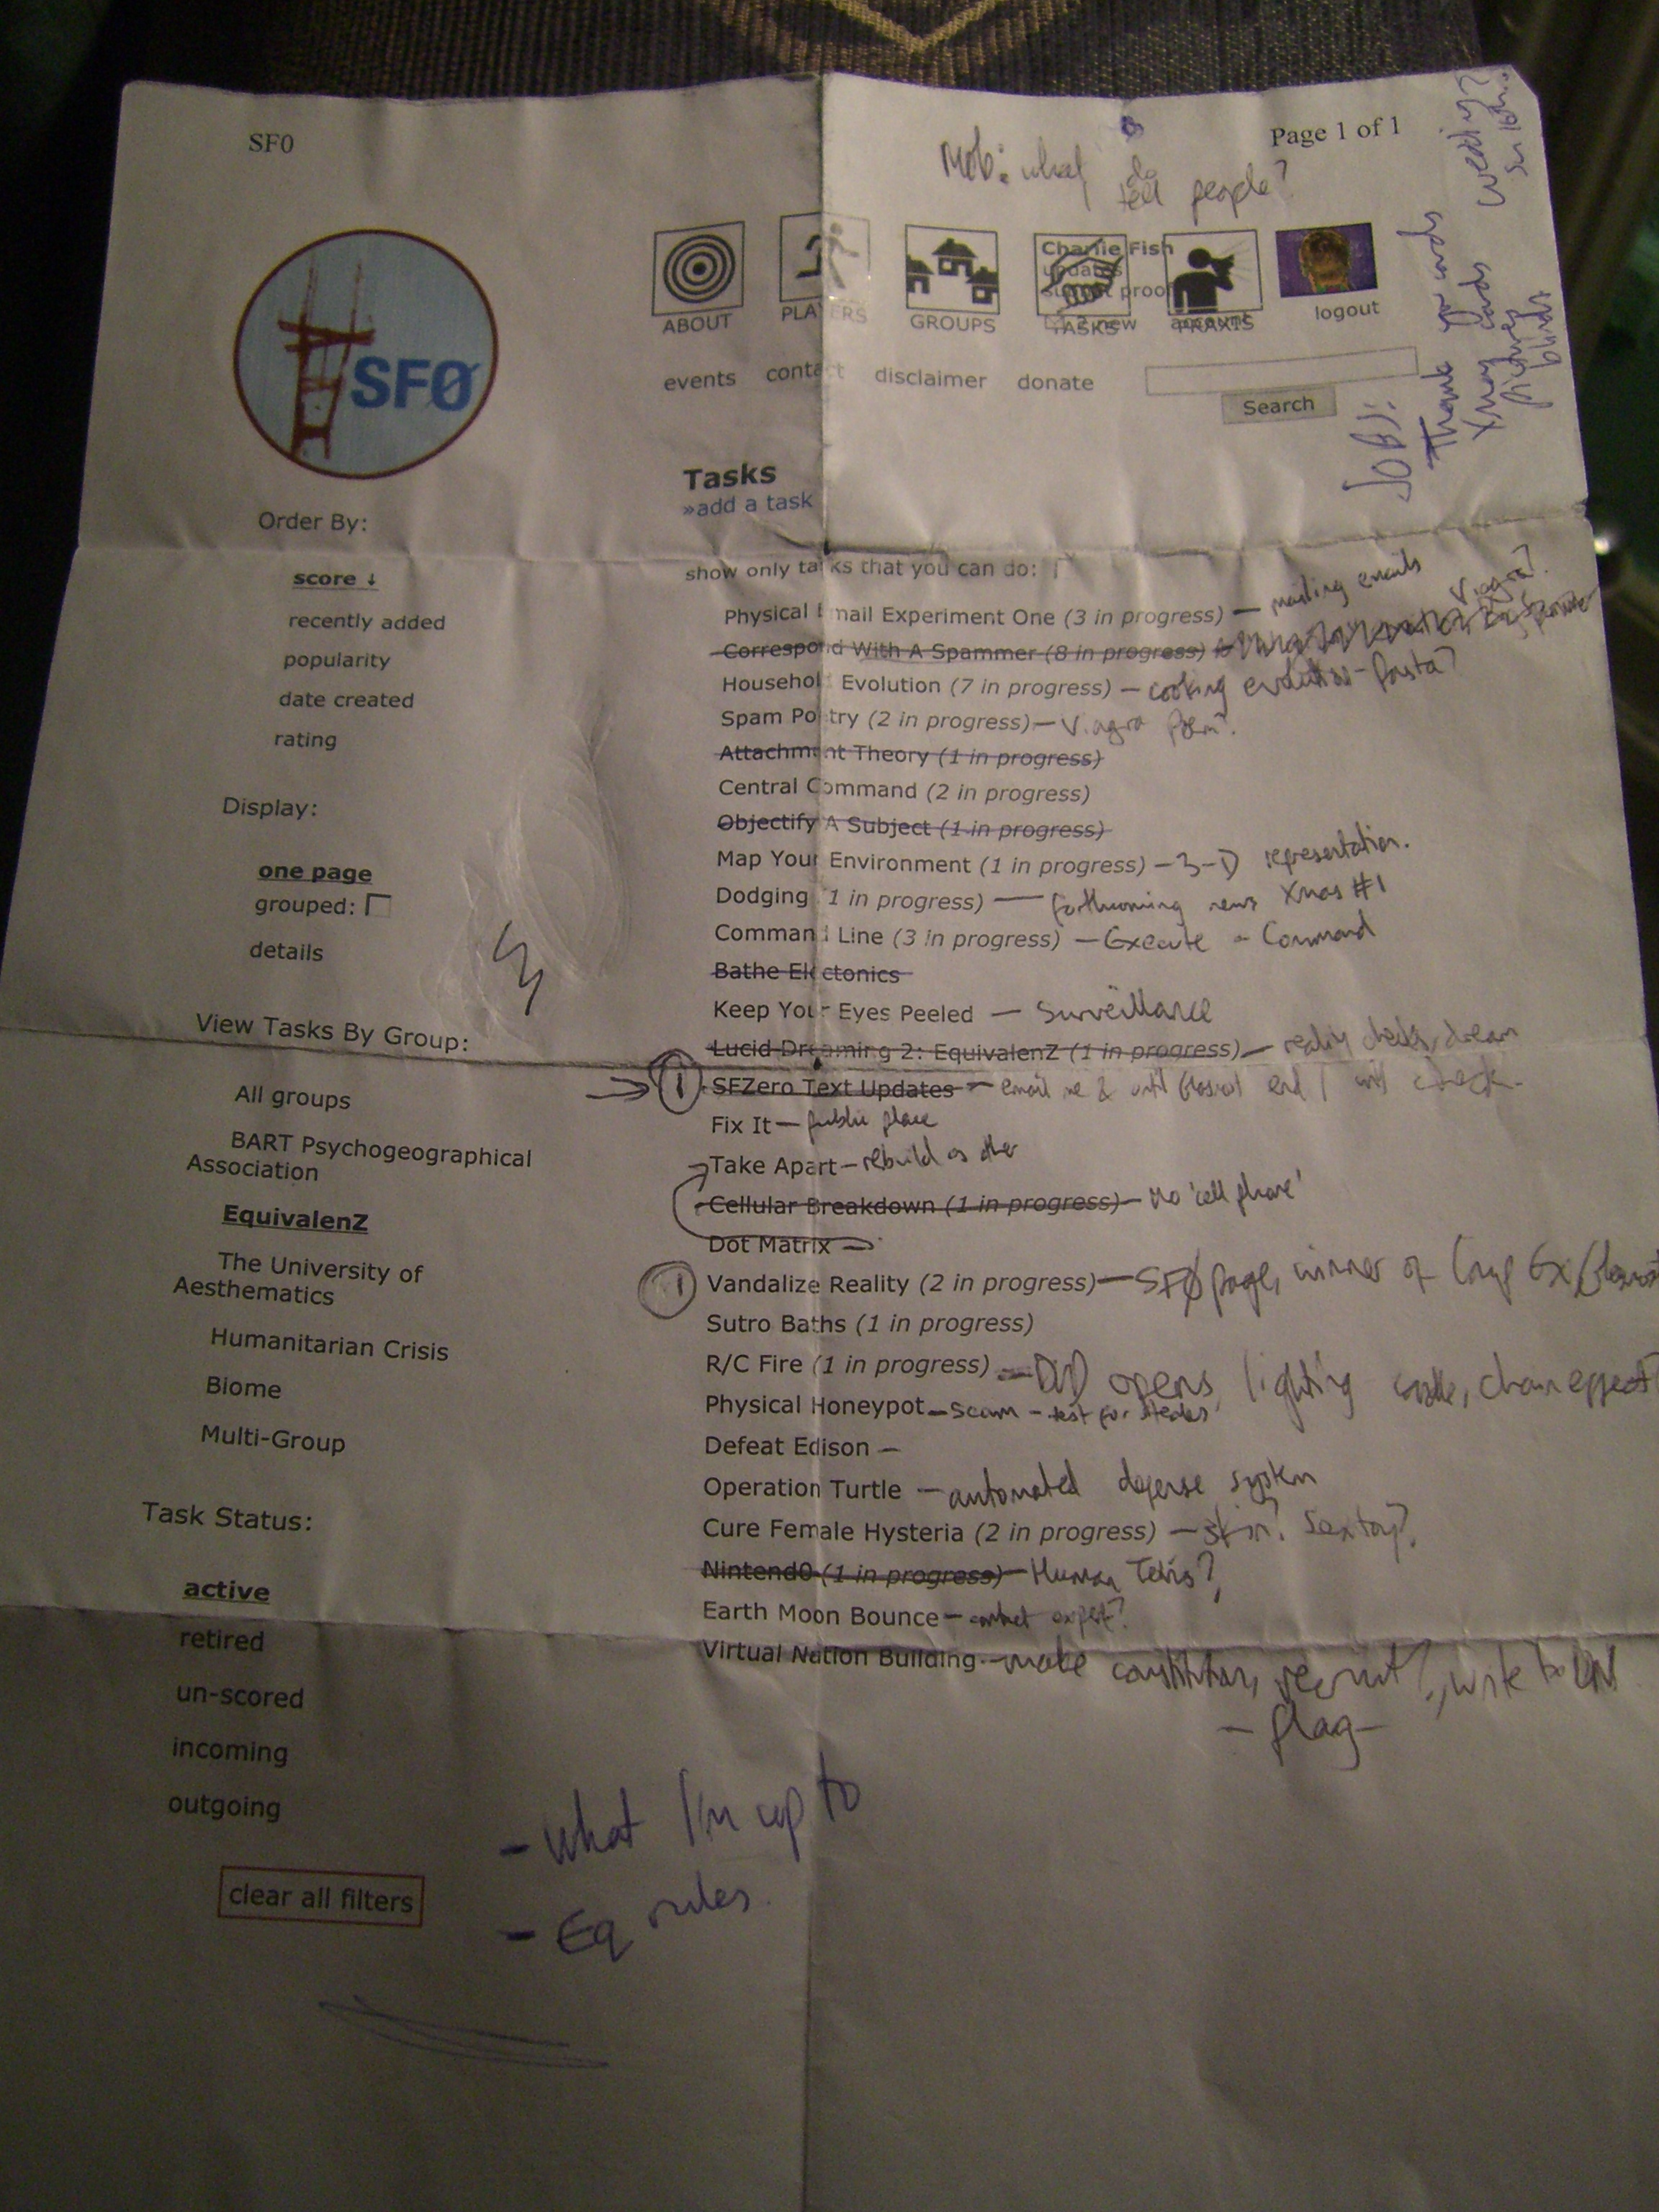 SF0
Page 1 of 1
Mob: what do
tell people?
SFØ
ABOUT
PLAYERS
GROUPS
TASKS
PRAXIS
Charlie Fish
updates
submit proof
2 new
account
logout
events contact disclaimer donate
Search
JOBS:
Thank you cards
Xmas cards
wedding?
blinds
Tasks
»add a task
Order By:
score ↓
recently added
popularity
date created
rating
Display:
one page
grouped:
details
View Tasks By Group:
All groups
BART Psychogeographical
Association
EquivalenZ
The University of
Aesthematics
Humanitarian Crisis
Biome
Multi-Group
Task Status:
active
retired
un-scored
incoming
outgoing
clear all filters
show only tasks that you can do:
Physical Email Experiment One (3 in progress) — mailing emails
Correspond With A Spammer (8 in progress) Viagra?
Household Evolution (7 in progress) — cooking evolution - Pasta?
Spam Poetry (2 in progress) — Viagra Poem?
Attachment Theory (1 in progress)
Central Command (2 in progress)
Objectify A Subject (1 in progress)
Map Your Environment (1 in progress) — 3-D representation.
Dodging (1 in progress) — forthcoming news Xmas #1
Command Line (3 in progress) — Execute - Command
Bathe Electonics
Keep Your Eyes Peeled — Surveillance
Lucid Dreaming 2: EquivalenZ (1 in progress) — reality checks, dream
→ 1 SFZero Text Updates — email me & until end I will check.
Fix It — public place
Take Apart — rebuild as other
Cellular Breakdown (1 in progress) — No 'cell phone'
Dot Matrix —
1 Vandalize Reality (2 in progress) — SFØ page, winner of
Sutro Baths (1 in progress)
R/C Fire (1 in progress) — DVD opens, lighting candle, chain effect
Physical Honeypot — Scam - test for
Defeat Edison —
Operation Turtle — automated defense system
Cure Female Hysteria (2 in progress) — Sex toy?
Nintend0 (1 in progress) — Human Tetris?
Earth Moon Bounce — contact expert?
Virtual Nation Building — make constitution, recruit?, write to UN
— flag —
- what I'm up to
- Eq rules